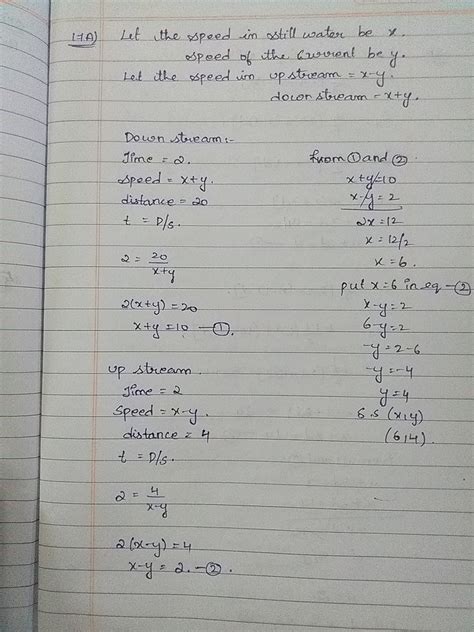 17A) Let the speed in still water be x.
speed of the Current be y.
Let the speed in up stream = x-y.
down stream = x+y.
Down stream:-
Time = 2.
speed = x+y.
distance = 20
t = D/s.
2 = 20/x+y
2(x+y) = 20
x+y = 10 — ①.
up stream.
Time = 2
Speed = x-y.
distance = 4
t = D/s.
2 = 4/x-y
2(x-y) = 4
x-y = 2. — ②.
from ① and ②.
x+y=10
x-y = 2
2x = 12
x = 12/2
x = 6.
put x = 6 in eq — ②
x-y = 2
6-y = 2
-y = 2-6
-y = -4
y = 4
6.s (x,y)
(6,4).